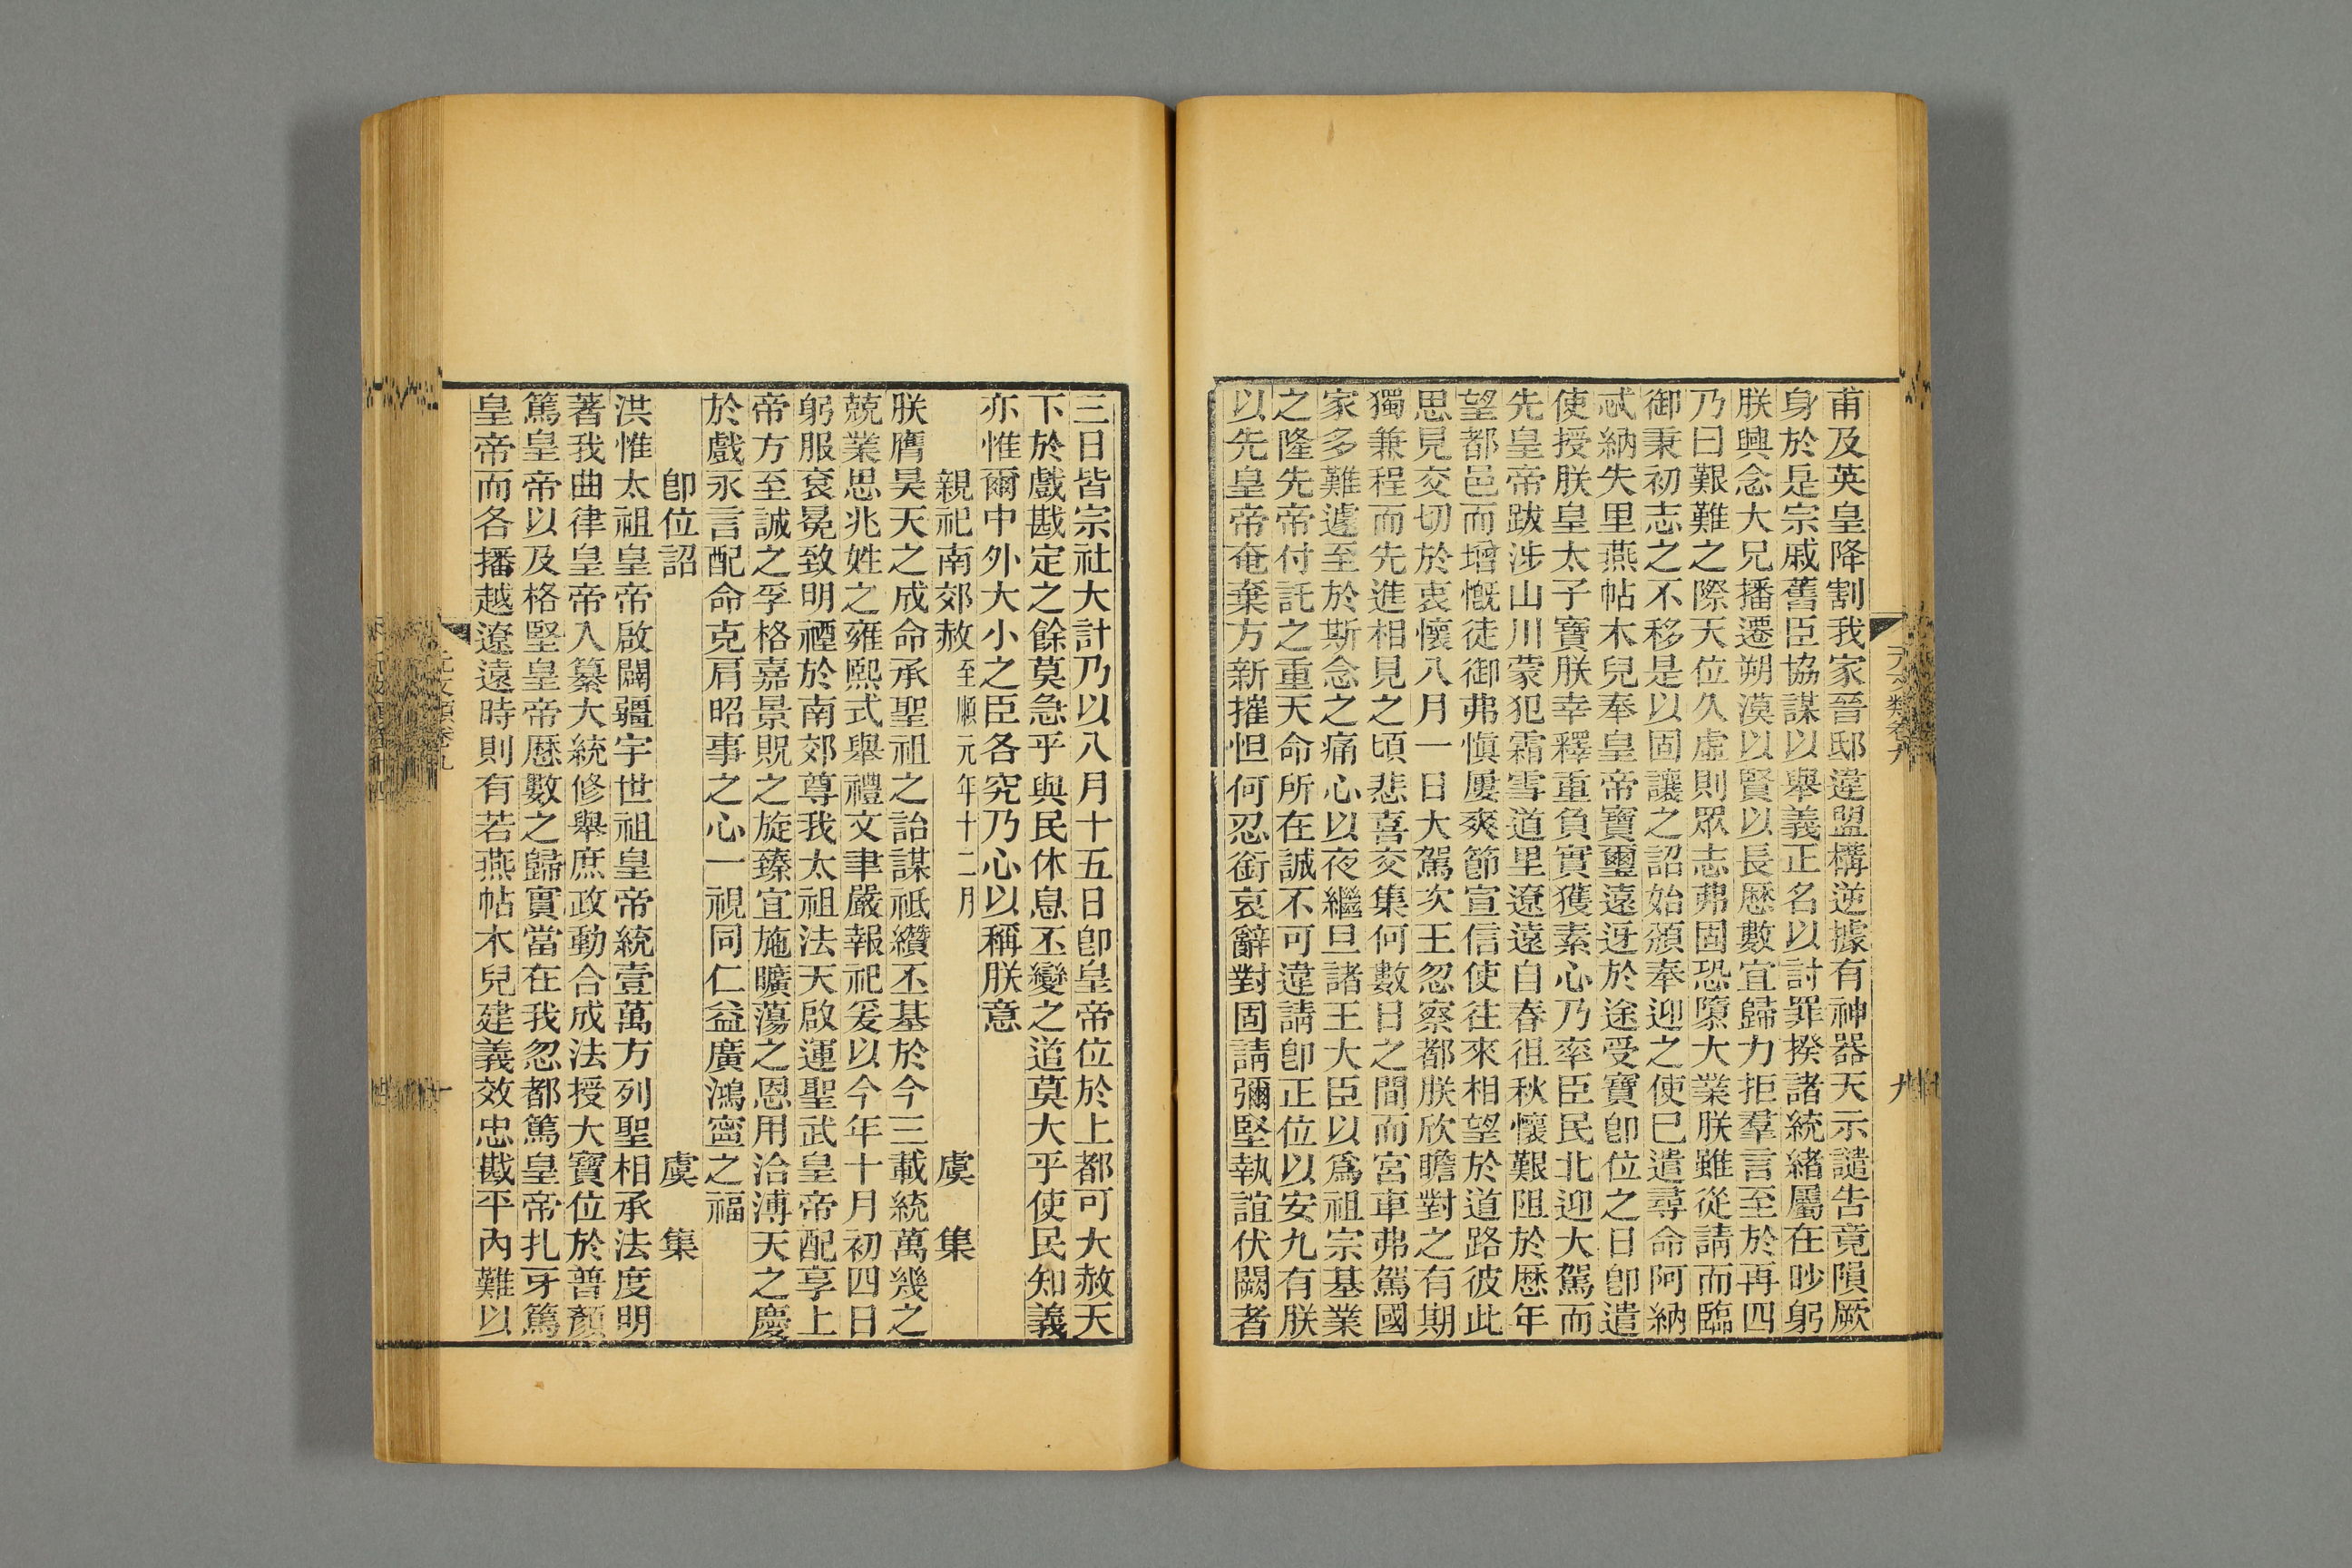 甫及英皇降割我家晉邸違盟構逆據有神器天示譴告竟隕厥
身於是宗戚舊臣協謀以舉義正名以討罪揆諸統緒屬在眇躬
朕興念大兄播遷朔漠以賢以長歷數宜歸力拒羣言至於再四
乃曰艱難之際天位久虛則眾志弗固恐隳大業朕雖從請而臨
御秉初志之不移是以固讓之詔始頒奉迎之使已遣尋命阿納
忒納失里燕帖木兒奉皇帝寶璽遠迓於途受寶卽位之日卽遣
使授朕皇太子寶朕幸釋重負實獲素心乃率臣民北迎大駕而
先皇帝跋涉山川蒙犯霜雪道里遼遠自春徂秋懷艱阻於歷年
望都邑而增慨徒御弗慎屢爽節宣信使往來相望於道路彼此
思見交切於衷懷八月一日大駕次王忽察都朕欣瞻對之有期
獨兼程而先進相見之頃悲喜交集何數日之間而宮車弗駕國
家多難遽至於斯念之痛心以夜繼旦諸王大臣以爲祖宗基業
之隆先帝付託之重天命所在誠不可違請卽正位以安九有朕
以先皇帝奄棄方新摧怛何忍銜哀辭對固請彌堅執誼伏闕者
元文類卷九
九
三日皆宗社大計乃以八月十五日卽皇帝位於上都可大赦天
下於戲戡定之餘莫急乎與民休息丕變之道莫大乎使民知義
亦惟爾中外大小之臣各究乃心以稱朕意
親祀南郊赦至順元年十二月 虞 集
朕膺昊天之成命承聖祖之詒謀祗纘丕基於今三載統萬幾之
兢業思兆姓之雍熙式舉禮文聿嚴報祀爰以今年十月初四日
躬服袞冕致明禋於南郊尊我太祖法天啟運聖武皇帝配享上
帝方至誠之孚格嘉景貺之旋臻宜施曠蕩之恩用洽溥天之慶
於戲永言配命克肩昭事之心一視同仁益廣鴻寍之福
卽位詔 虞 集
洪惟太祖皇帝啟闢疆宇世祖皇帝統壹萬方列聖相承法度明
著我曲律皇帝入纂大統修舉庶政動合成法授大寶位於普顏
篤皇帝以及格堅皇帝歷數之歸實當在我忽都篤皇帝扎牙篤
皇帝而各播越遼遠時則有若燕帖木兒建義效忠戡平內難以